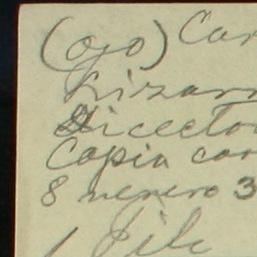 (ojo) Car
Lizarr
Director
Copia car
8 nenero 3
1 File